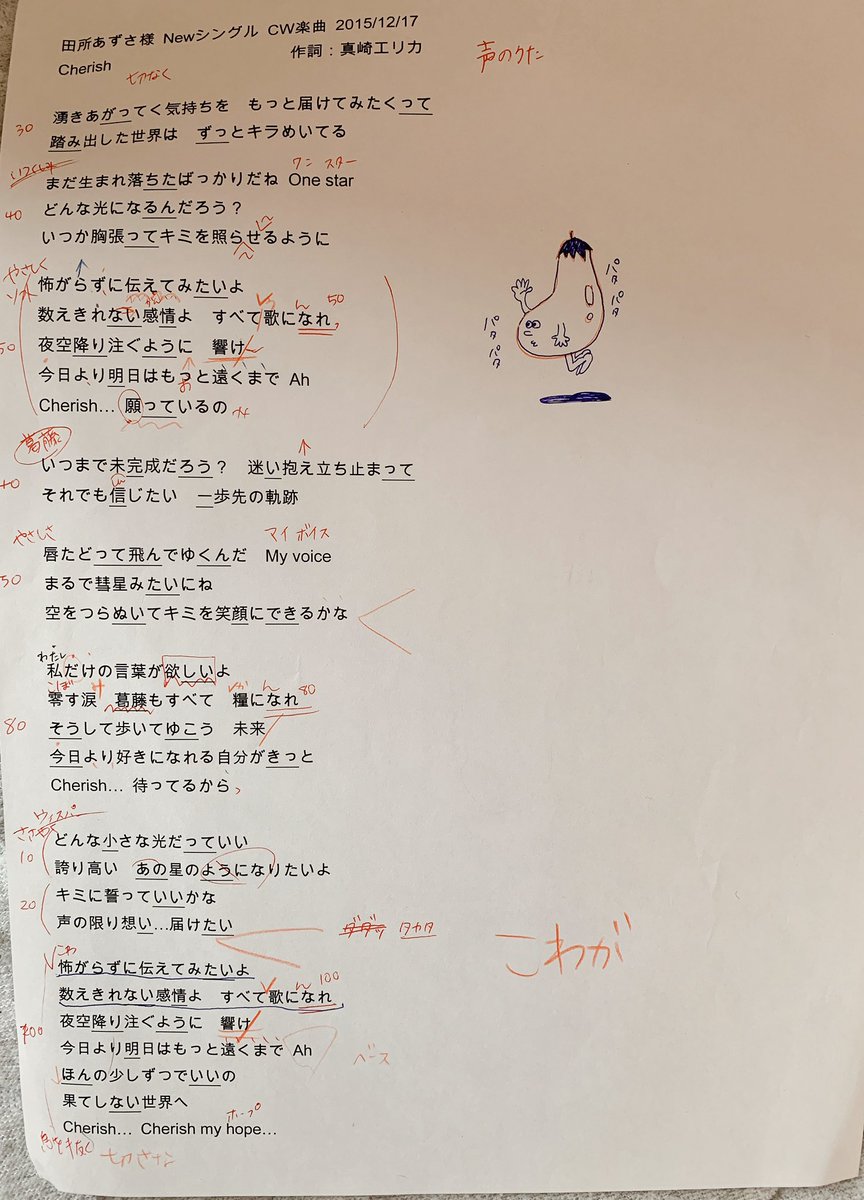 田所あずさ様 Newシングル CW楽曲 2015/12/17
Cherish 作詞：真崎エリカ
声のうた
切なく
湧きあがってく気持ちを もっと届けてみたくって
30
踏み出した世界は ずっとキラめいてる
ワン スター
まだ生まれ落ちたばっかりだね One star
40
どんな光になるんだろう？
いつか胸張ってキミを照らせるように
やさしく
ソフト
怖がらずに伝えてみたいよ
数えきれない感情よ すべて歌になれ
ん 50
50
夜空降り注ぐように 響け
今日より明日はもっと遠くまで Ah
Cherish… 願っているの
パタ
パタ
パタ
パタ
葛藤
いつまで未完成だろう？ 迷い抱え立ち止まって
それでも信じたい 一歩先の軌跡
やさしさ
マイ ボイス
唇たどって飛んでゆくんだ My voice
50
まるで彗星みたいにね
空をつらぬいてキミを笑顔にできるかな
わたし
私だけの言葉が欲しいよ
こぼ
零す涙 葛藤もすべて 糧になれ
かて ん 80
80
そうして歩いてゆこう 未来
今日より好きになれる自分がきっと
Cherish… 待ってるから
ウィスパー
ささやく
どんな小さな光だっていい
10
誇り高い あの星のようになりたいよ
20
キミに誓っていいかな
声の限り想い…届けたい
タカタ
こわが
こわ
怖がらずに伝えてみたいよ
ん 100
数えきれない感情よ すべて歌になれ
100
夜空降り注ぐように 響け
今日より明日はもっと遠くまで Ah
ベース
ほんの少しずつでいいの
果てしない世界へ
ホープ
Cherish… Cherish my hope…
息をぬく
切なさ